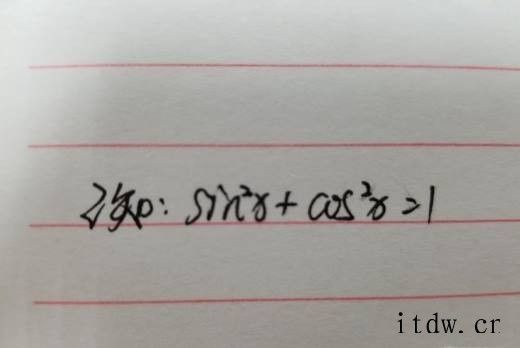 已知: sin²x + cos²x = 1
itdw.cr